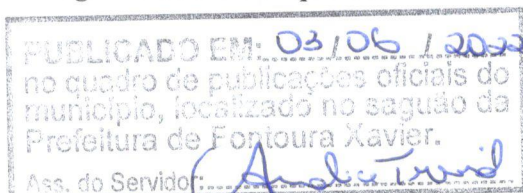 PUBLICADO EM: 03/06/2022
no quadro de publicações oficiais do
município, localizado no saguão da
Prefeitura de Fontoura Xavier.
Ass. do Servidor: